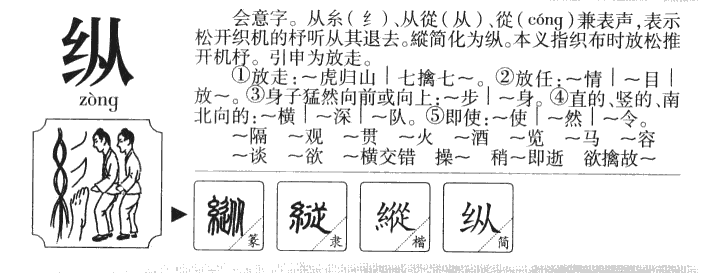 纵
zòng
会意字。从糸(纟)、从從(从)、從(cóng)兼表声,表示
松开织机的杼听从其退去。縱简化为纵。本义指织布时放松推
开机杼。引申为放走。
①放走:～虎归山｜七擒七～。②放任:～情｜～目｜
放～。③身子猛然向前或向上:～步｜～身。④直的、竖的、南
北向的:～横｜～深｜～队。⑤即使:～使｜～然｜～令。
～隔 ～观 ～贯 ～火 ～酒 ～览 ～马 ～容
～谈 ～欲 ～横交错 操～ 稍～即逝 欲擒故～
縱 篆
縱 隶
縱 楷
纵 简